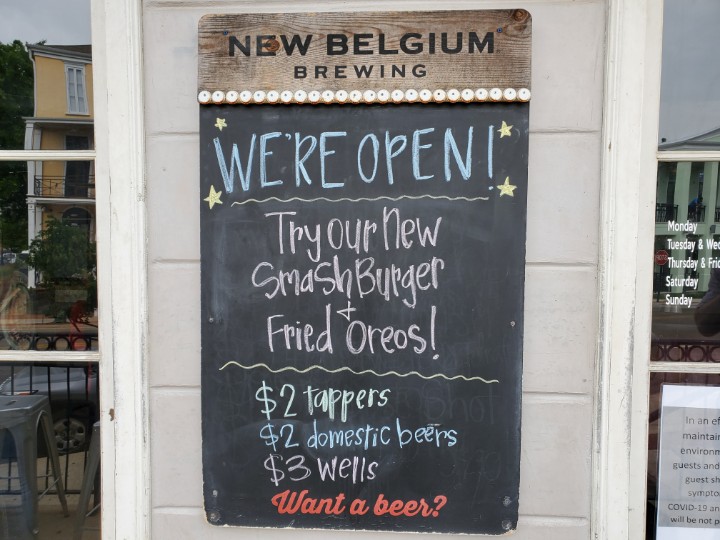 NEW BELGIUM
BREWING
WE'RE OPEN!
Try our New
SmashBurger
+
Fried Oreos!
$2 tappers
$2 domestic beers
$3 wells
Want a beer?
Monday
Tuesday & Wed
Thursday & Frid
Saturday
Sunday
In an ef
maintain
environm
guests and
guest sh
sympto
COVID-19 an
will be not p